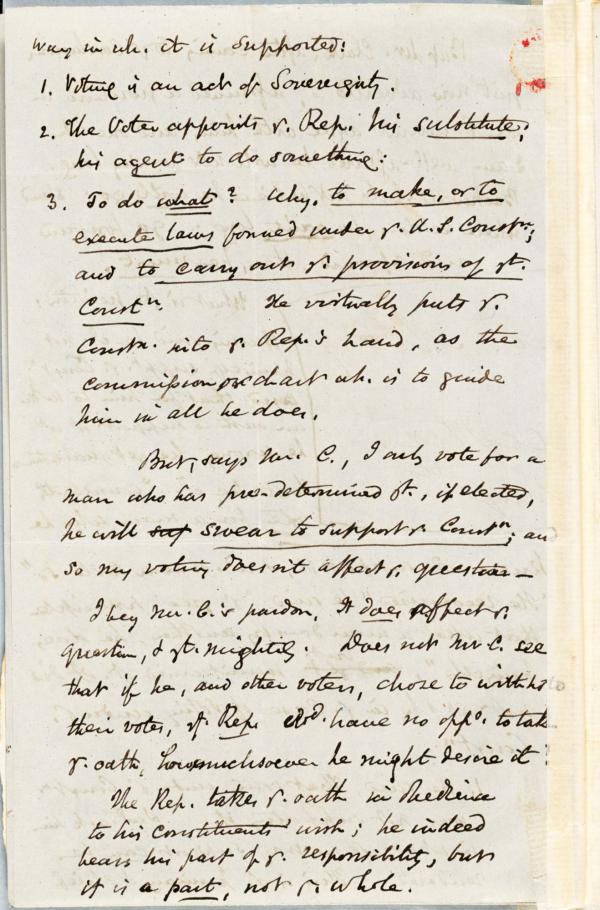 way in wh. it is supported:
1. Voting is an act of Sovereignty.
2. The Voter appoints y. Rep. his substitute;
his agent to do something:
3. To do what? Why, to make, or to
execute laws formed under y. U.S. Constn.;
and to carry out y. provisions of yt.
Constn. He virtually puts y.
Constn. into y. Rep.'s hand, as the
commission or chart wh. is to guide
him in all he does.
But, says Mr. C., I only vote for a
man who has pre-determined yt., if elected,
he will say swear to support y. Constn.; and
so my voting doesn't affect y. question—
I beg Mr. C.'s pardon. It does affect y.
question, & yt. mightily. Does not Mr. C. see
that if he, and other voters, chose to withhold
their votes, yt. Rep. wod. have no oppo. to take
y. oath, howmuchsoever he might desire it?
The Rep. takes y. oath in obedience
to his constituents' wish; he indeed
bears his part of y. responsibility, but
it is a part, not y. whole.